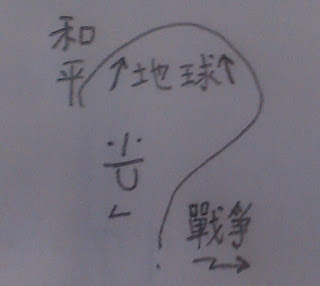 和平
↑地球↑
戰爭